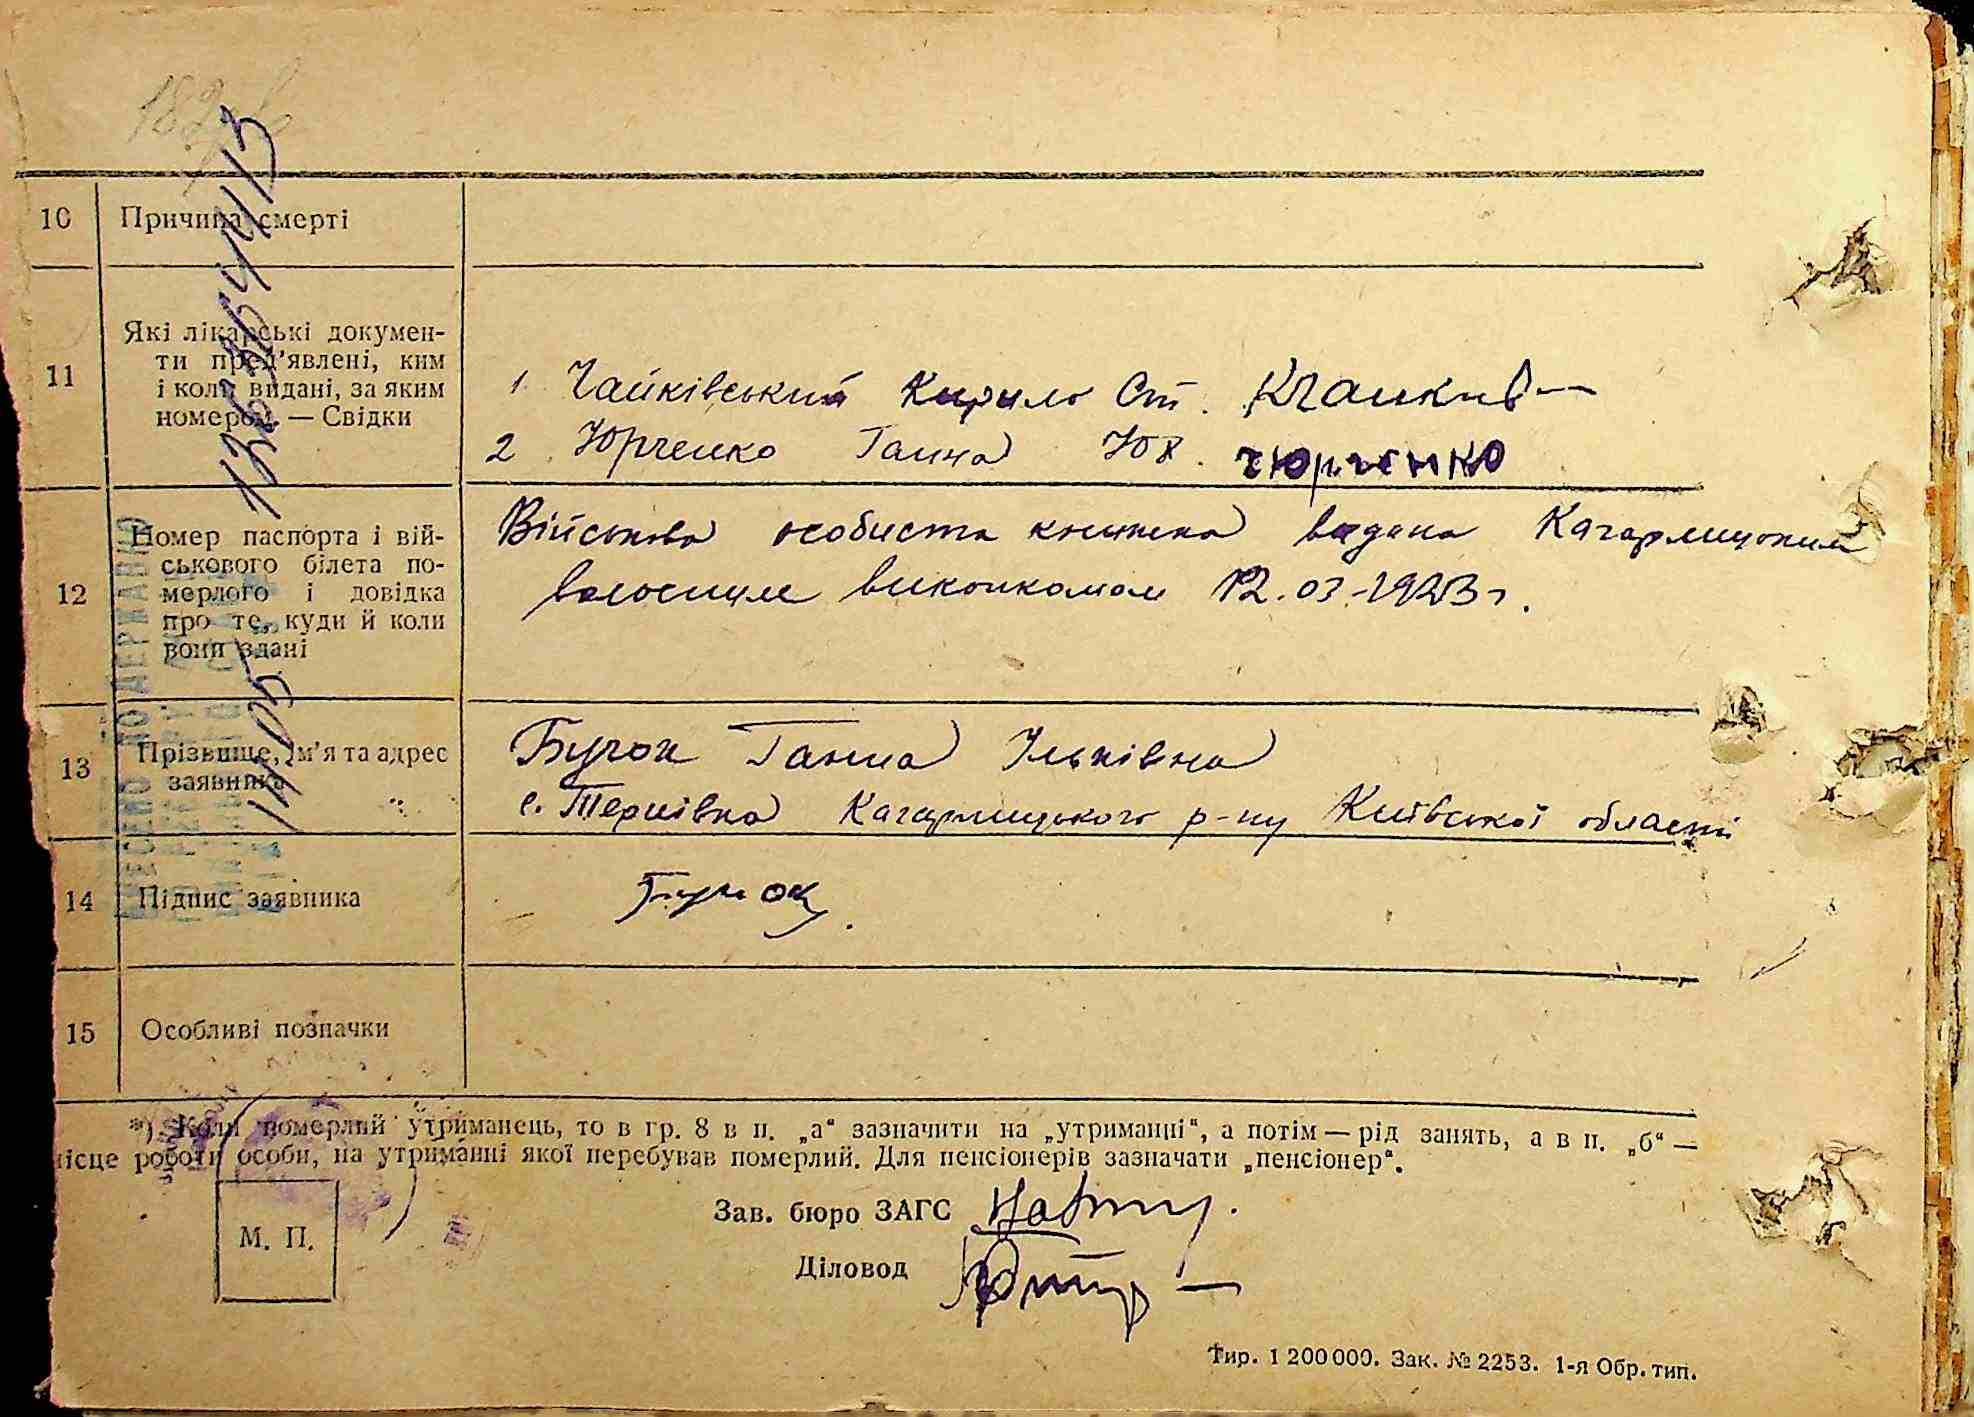 10 Причина смерті
11 Які лікарські докумен-
ти пред'явлені, ким
і коли видані, за яким
номером. — Свідки
1 Чайківський Кирило Ст.
2. Юрченко Ганна Юх. ЮРЧЕНКО
12 Номер паспорта і вій-
ськового білета по-
мерлого і довідка
про те, куди й коли
вони здані
Військова особиста книжка видана Кагарлицьким
волосним виконкомом 12.03-1923 г.
13 Прізвище, ім'я та адрес
заявника
Ганна Ільківна
с. Тернівка Кагарлицького р-ну Київської області
14 Підпис заявника
15 Особливі позначки
*) Коли померлий утриманець, то в гр. 8 в п. „а“ зазначити на „утриманні“, а потім — рід занять, а в п. „б“ —
місце роботи особи, на утриманні якої перебував померлий. Для пенсіонерів зазначати „пенсіонер“.
Зав. бюро ЗАГС
Діловод
М. П.
Тир. 1 200 000. Зак. № 2253. 1-я Обр. тип.